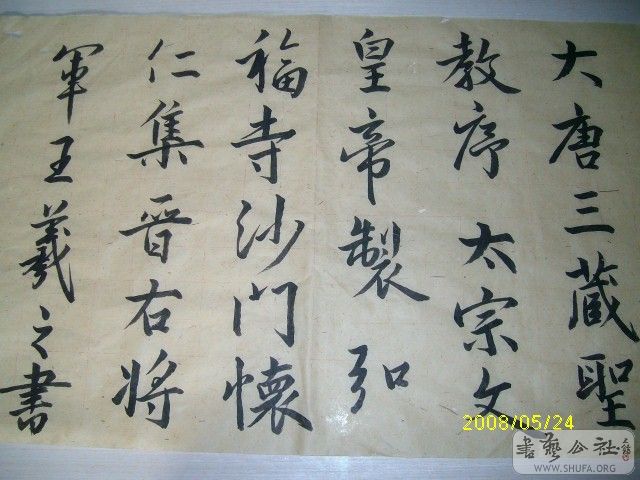 大唐三藏聖
教序 太宗文
皇帝製 弘
福寺沙門懷
仁集晉右將
軍王羲之書
2008/05/24
書藝公社
WWW.SHUFA.ORG